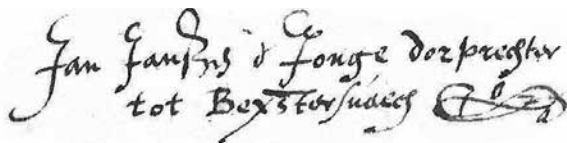 Jan Janszns d Jonge dorprechter
tot Bexstersuaech